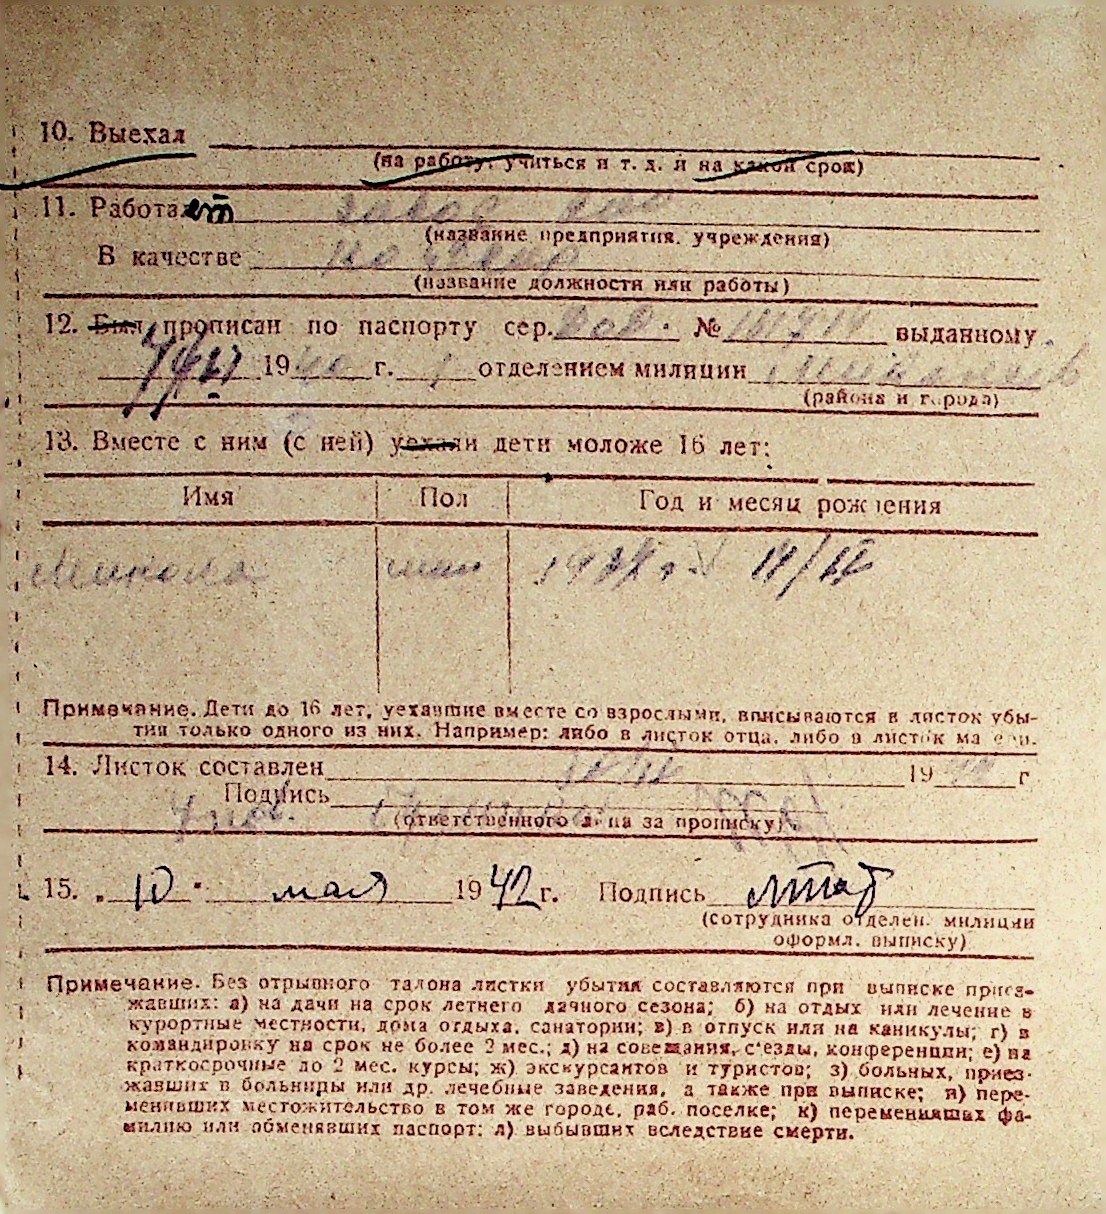 10. Выехал
(на работу, учиться и т. д. и на какой срок)
11. Работает завод
(название предприятия, учреждения)
В качестве
(название должности или работы)
12. Был прописан по паспорту сер. № выданному
19 40 г. 1 отделением милиции
(района и города)
13. Вместе с ним (с ней) уехали дети моложе 16 лет:
Имя Пол Год и месяц рождения
Микола
Примечание. Дети до 16 лет, уехавшие вместе со взрослыми, вписываются в листок убы-
тия только одного из них. Например: либо в листок отца, либо в листок матери.
14. Листок составлен 19 г.
Подпись
(ответственного лица за прописку)
15. „ 10 " мая 19 42 г. Подпись
(сотрудника отделен. милиции
оформл. выписку)
Примечание. Без отрывного талона листки убытия составляются при выписке приез-
жавших: а) на дачи на срок летнего дачного сезона; б) на отдых или лечение в
курортные местности, дома отдыха, санатории; в) в отпуск или на каникулы; г) в
командировку на срок не более 2 мес.; д) на совещания, с'езды, конференции; е) на
краткосрочные до 2 мес. курсы; ж) экскурсантов и туристов; з) больных, приез-
жавших в больницы или др. лечебные заведения, а также при выписке; и) пере-
менивших местожительство в том же городе, раб. поселке; к) переменивших фа-
милию или обменявших паспорт; л) выбывших вследствие смерти.